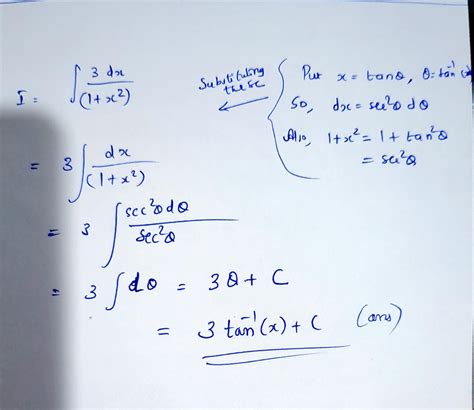 I = ∫ 3 dx / (1+x²)
Substituting these
Put x = tanθ, θ = tan⁻¹(x)
So, dx = sec²θ dθ
Also, 1+x² = 1 + tan²θ
= sec²θ
= 3 ∫ dx / (1+x²)
= 3 ∫ sec²θ dθ / sec²θ
= 3 ∫ dθ = 3θ + C
= 3 tan⁻¹(x) + C (ans)